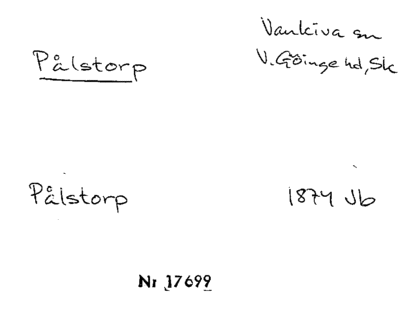 Pålstorp
Vankiva sn
V. Göinge hd, Sk
Pålstorp
1874 Jb
Nr 17699